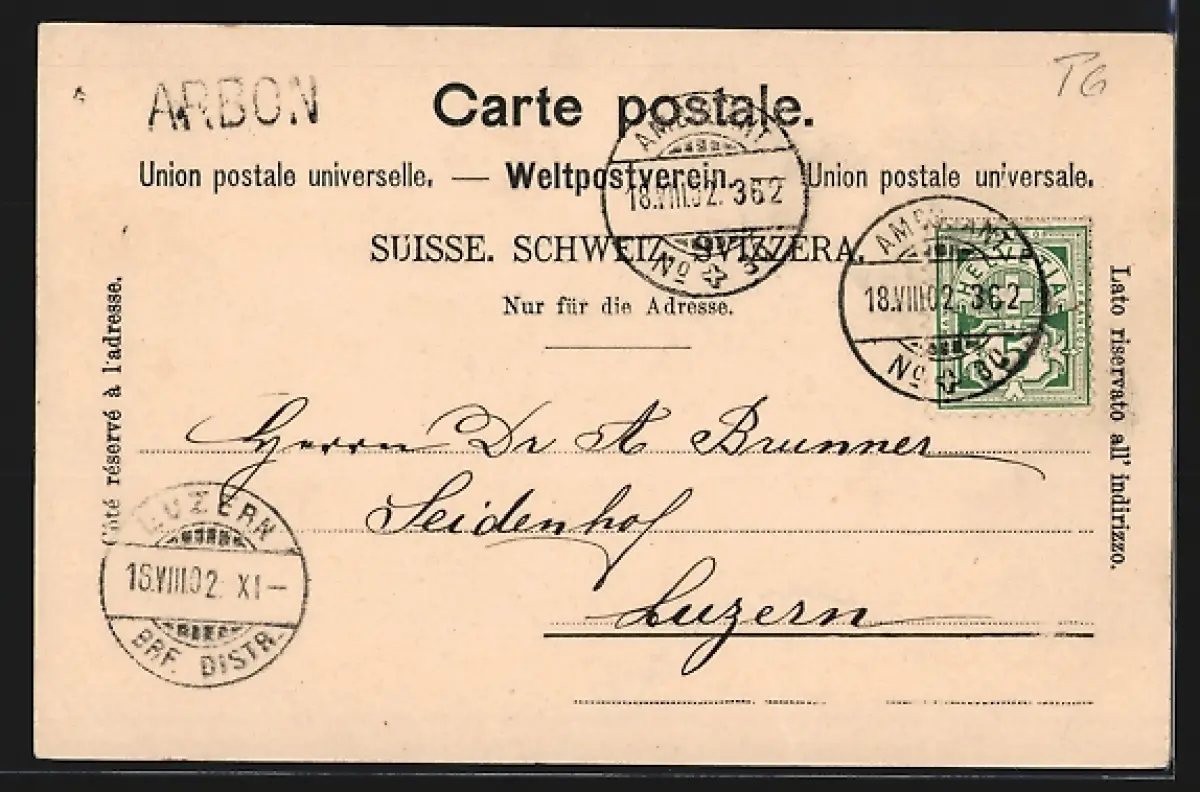 TG
ARBON
Carte postale.
Union postale universelle. — Weltpostverein. — Union postale universale.
SUISSE. SCHWEIZ. SVIZZERA.
Nur für die Adresse.
AMBULANT
18.VIII.02. 362
No 30
AMBULANT
18.VIII.02 362
No 30
HELVETIA
5
Côté réservé à l'adresse.
Lato riservato all' indirizzo.
Herrn Dr A Brunner
Seidenhof
Luzern
LUZERN
18.VIII.02. XI—
BRF. DISTR.